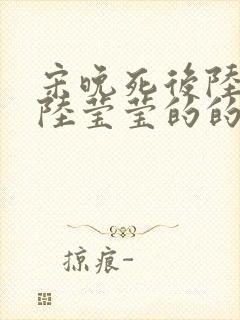 宋晚死後陸
陸瑩瑩的的
掠痕-